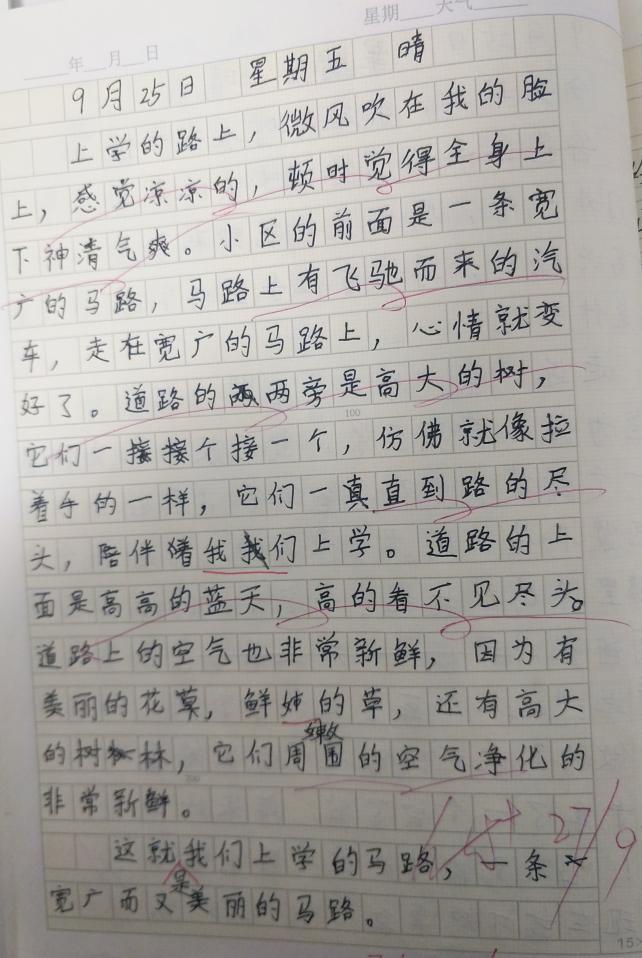 星期 天气
年 月 日
9月25日 星期五 晴
上学的路上，微风吹在我的脸
上，感觉凉凉的，顿时觉得全身上
下神清气爽。小区的前面是一条宽
广的马路，马路上有飞驰而来的汽
车，走在宽广的马路上，心情就变
好了。道路的两旁是高大的树，
它们一接接个接一个，仿佛就像拉
着手的一样，它们一真直到路的尽
头，陪伴着我我们上学。道路的上
面是高高的蓝天，高的看不见尽头。
道路上的空气也非常新鲜，因为有
美丽的花草，鲜嫩的草，还有高大
的树林，它们周围的空气净化的
100
200
非常新鲜。
这就是我们上学的马路，一条
宽广而又美丽的马路。
27/9